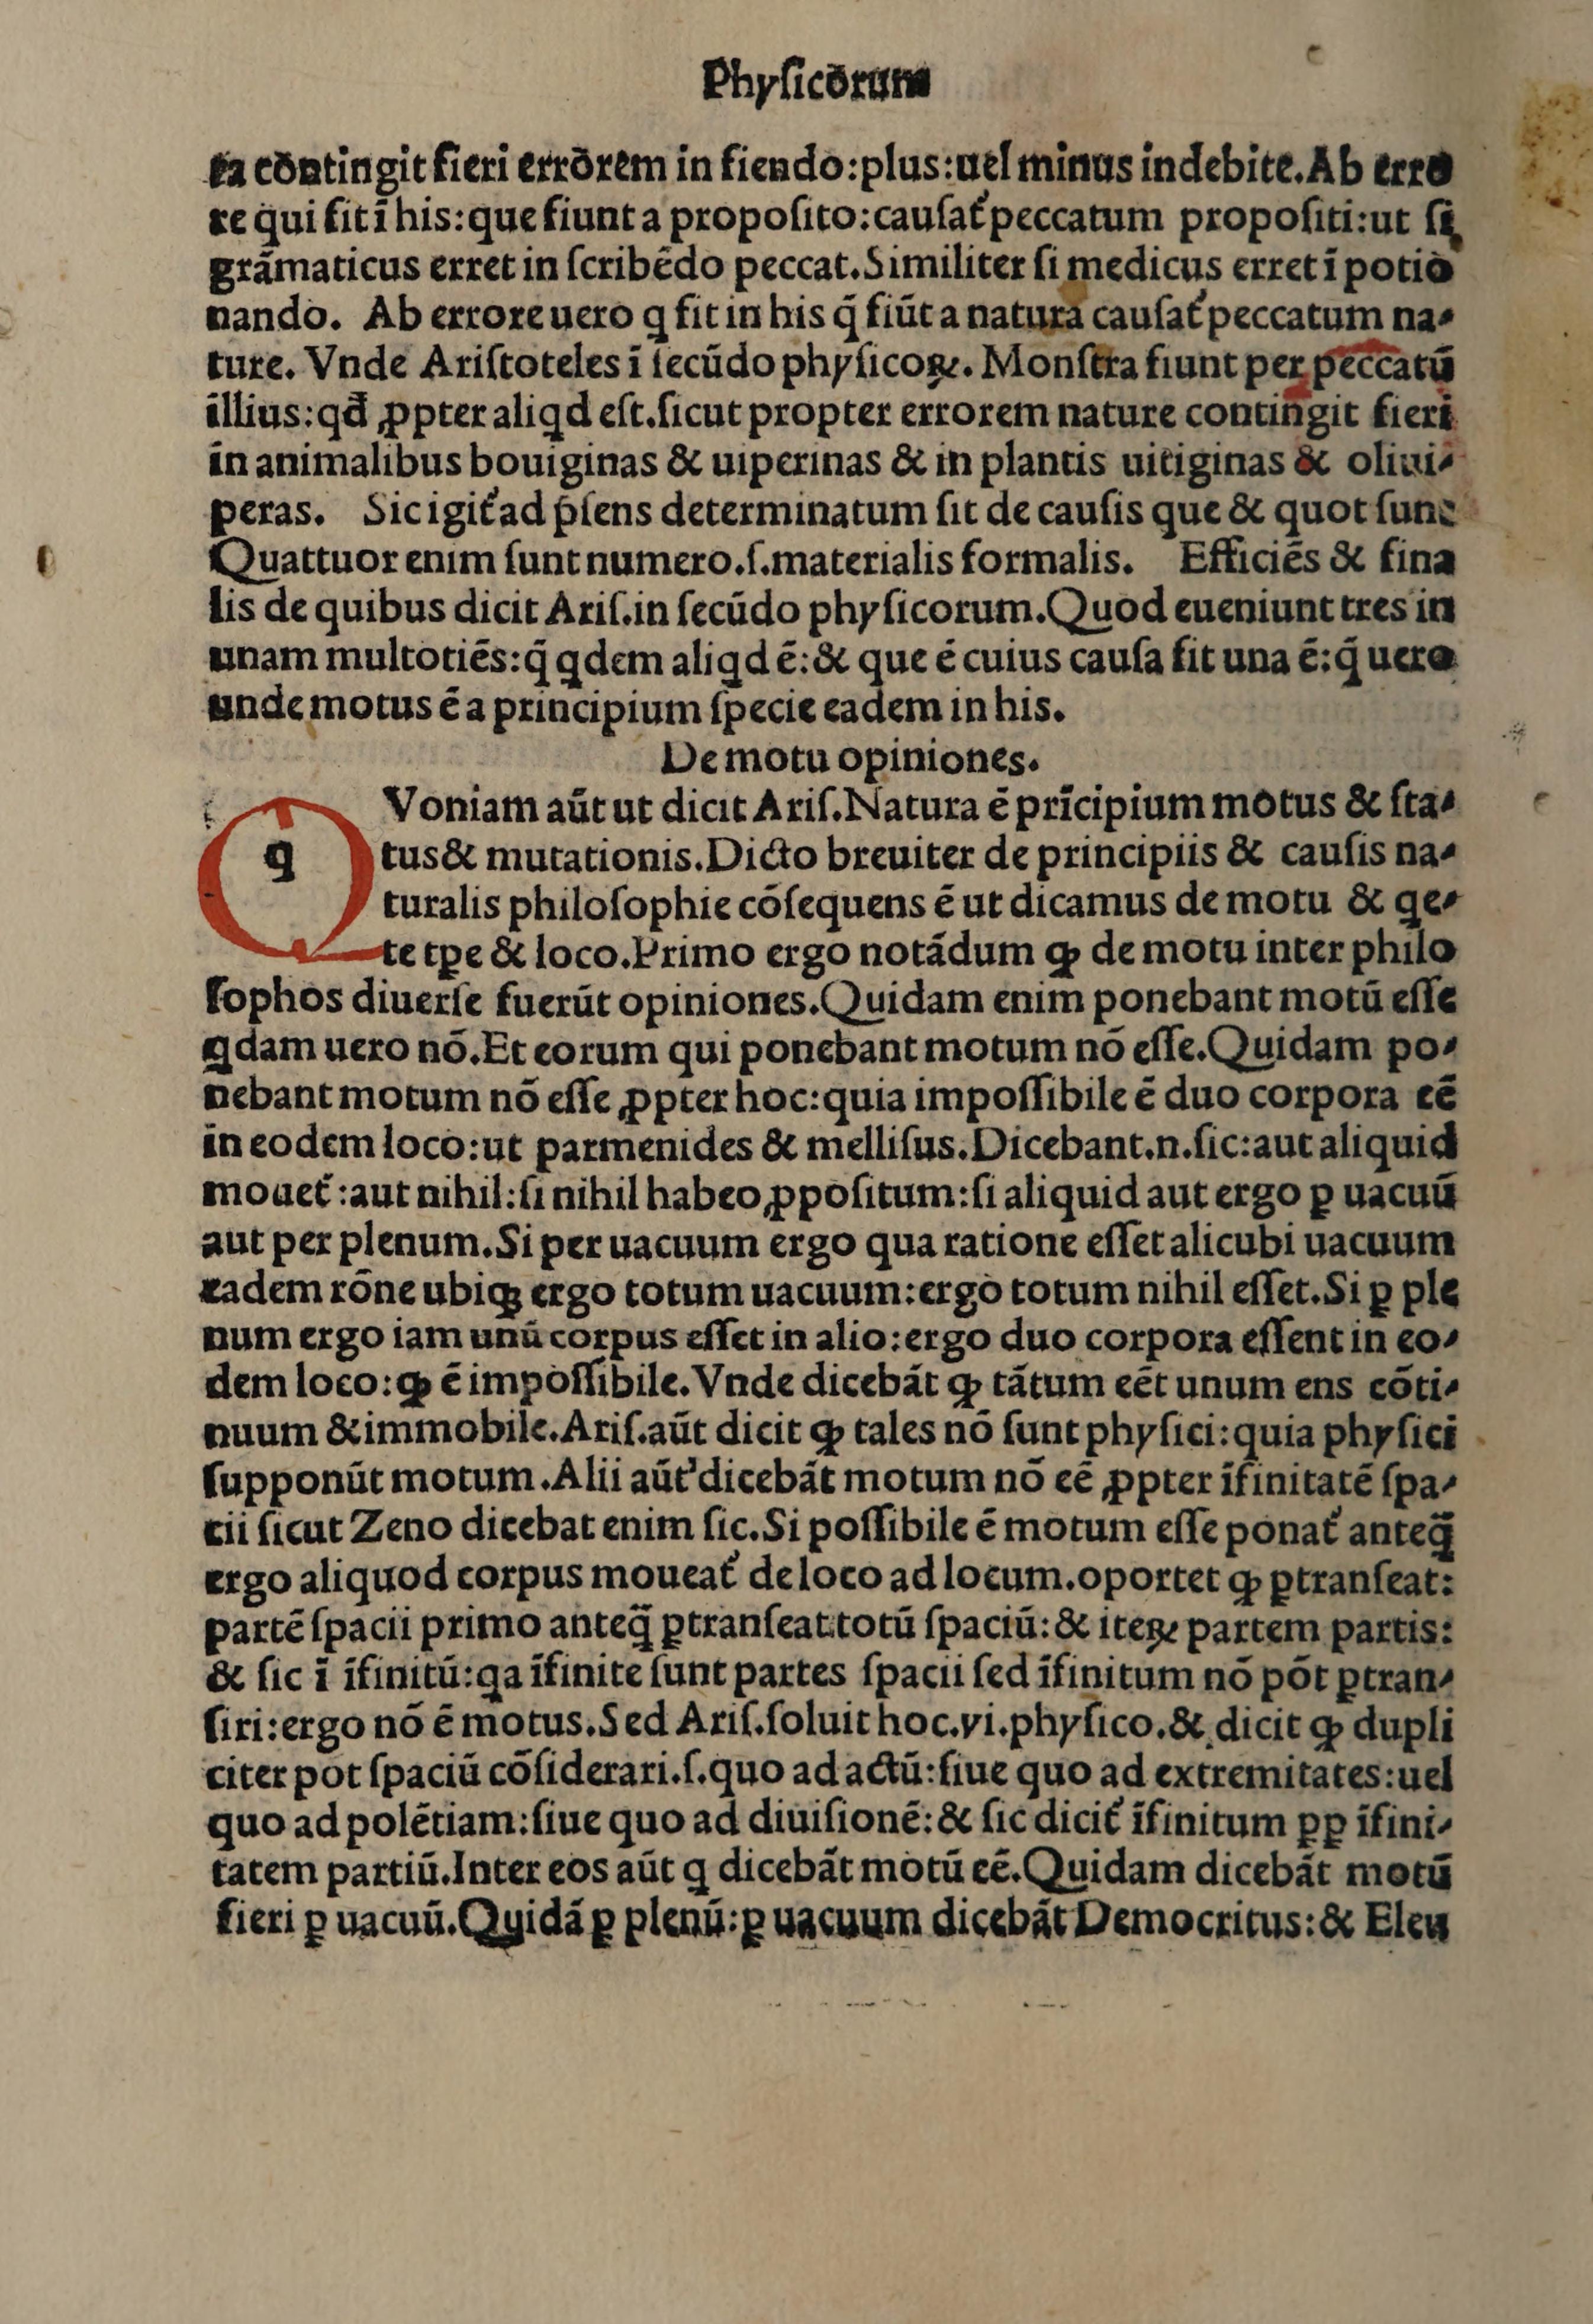 Phyſicõrum
ra cõntingit fieri errõrem in fiendo:plus:uel minus indebite.Ab erro
re qui fit ĩ his:que fiunt a propoſito:cauſať peccatum propoſiti:ut ſi
grãmaticus erret in ſcribẽdo peccat.Similiter ſi medicus erret ĩ potio
nando. Ab errore uero q fit in his q̃ fiũt a natura cauſať peccatum na⸗
ture. Vnde Ariſtoteles ĩ ſecũdo phyſicoꝝ. Monſtra fiunt per peccatũ
illius:qđ ꝓpter aliqd eſt.ſicut propter errorem nature contingit fieri
in animalibus bouiginas & uiperinas & in plantis uitiginas & oliui⸗
peras. Sic igiť ad p̃ſens determinatum ſit de cauſis que & quot ſunt
Quattuor enim ſunt numero.ſ.materialis formalis. Efficiẽs & fina
lis de quibus dicit Ariſ.in ſecũdo phyſicorum.Quod eueniunt tres in
unam multotiẽs:q̃ qdem aliqd ẽ:& que ẽ cuius cauſa fit una ẽ:q̃ uero
unde motus ẽ a principium ſpecie eadem in his.
De motu opiniones.
q Voniam aũt ut dicit Ariſ.Natura ẽ prĩcipium motus & ſta⸗
tus& mutationis.Dicto breuiter de principiis & cauſis na⸗
turalis philoſophie cõſequens ẽ ut dicamus de motu & qe⸗
te tꝑe & loco.Primo ergo notãdum ꝙ de motu inter philo
ſophos diuerſe fuerũt opiniones.Quidam enim ponebant motũ eſſe
qdam uero nõ.Et eorum qui ponebant motum nõ eſſe.Quidam po⸗
nebant motum nõ eſſe ꝓpter hoc:quia impoſſibile ẽ duo corpora eẽ
in eodem loco:ut parmenides & melliſus.Dicebant.n.ſic:aut aliquid
moueť:aut nihil:ſi nihil habeo ꝓpoſitum:ſi aliquid aut ergo ꝑ uacuũ
aut per plenum.Si per uacuum ergo qua ratione eſſet alicubi uacuum
eadem rõne ubiqꝫ ergo totum uacuum:ergo totum nihil eſſet.Si ꝑ ple
num ergo iam unũ corpus eſſet in alio:ergo duo corpora eſſent in eo⸗
dem loco:ꝙ ẽ impoſſibile.Vnde dicebãt ꝙ tãtum eẽt unum ens cõti⸗
nuum &immobile.Ariſ.aũt dicit ꝙ tales nõ ſunt phyſici:quia phyſici
ſupponũt motum.Alii aũt dicebãt motum nõ eẽ ꝓpter ĩfinitatẽ ſpa⸗
cii ſicut Zeno dicebat enim ſic.Si poſſibile ẽ motum eſſe ponať anteq̃
ergo aliquod corpus moueať de loco ad locum.oportet ꝙ ꝑtranſeat:
partẽ ſpacii primo anteq̃ ꝑtranſeat.totũ ſpaciũ:& iteꝝ partem partis:
& ſic ĩ ĩfinitũ:qa ĩfinite ſunt partes ſpacii ſed ĩfinitum nõ põt ꝑtran⸗
ſiri:ergo nõ ẽ motus.Sed Ariſ.ſoluit hoc.vi.phyſico.& dicit ꝙ dupli
citer pot ſpaciũ cõſiderari.ſ.quo ad actũ:ſiue quo ad extremitates:uel
quo ad polẽtiam:ſiue quo ad diuiſionẽ:& ſic diciť ĩfinitum ꝑꝑ ĩfini⸗
tatem partiũ.Inter eos aũt q dicebãt motũ eẽ.Quidam dicebãt motũ
fieri ꝑ uacuũ.Quidã ꝑ plenũ:ꝑ uacuum dicebãt Democritus:& Eleu